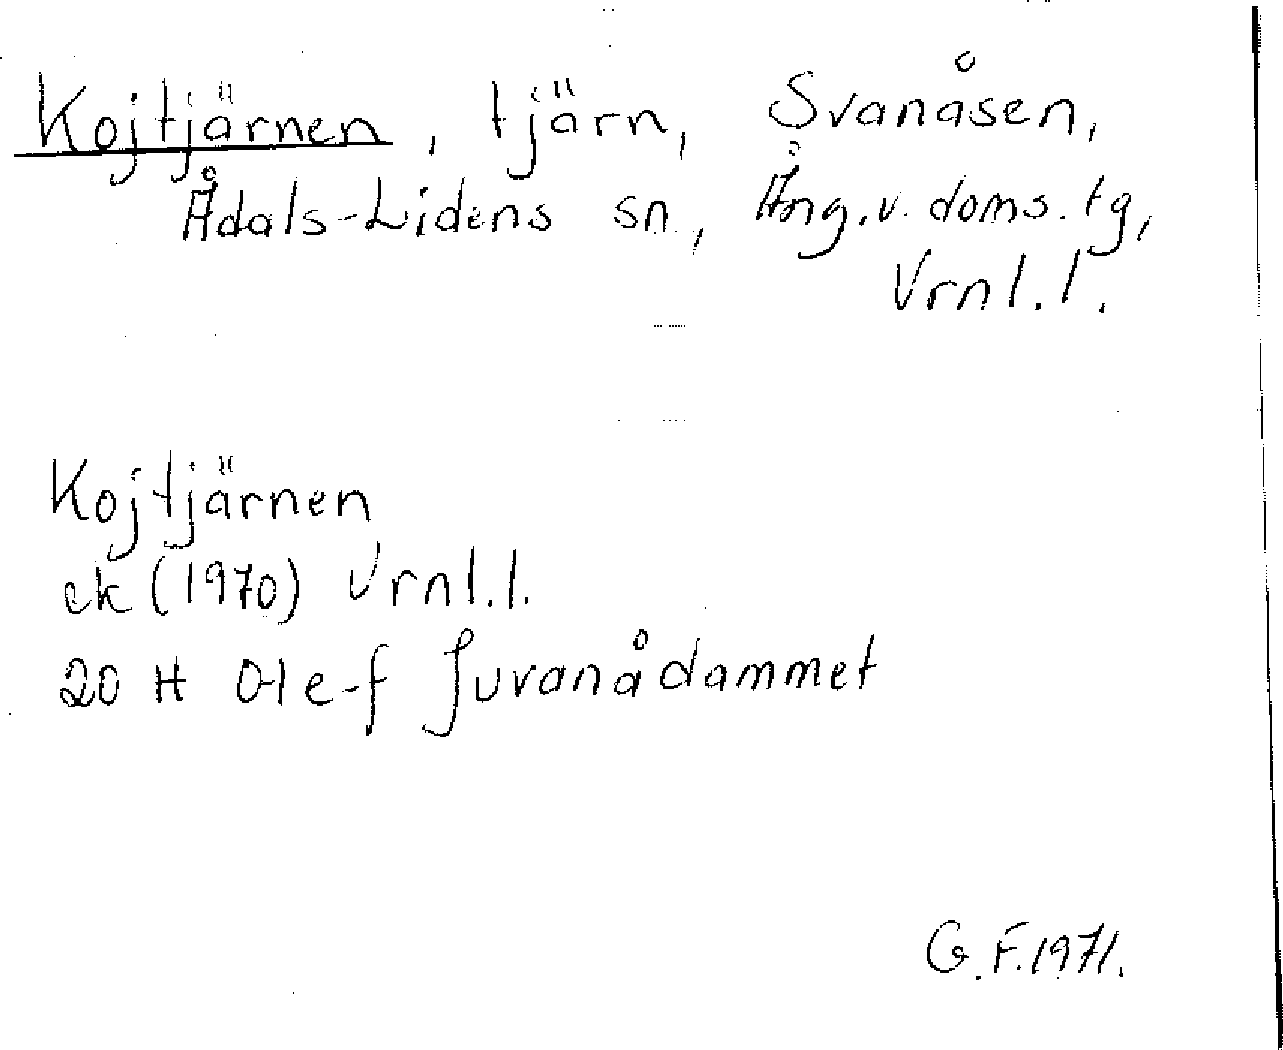 Kojtjärnen, tjärn, Svanåsen,
Ådals-Lidens sn., Ång.v. doms. tg,
Vrnl.l.
Kojtjärnen
ek (1970) Vrnl.l.
20 H 0-1 e-f Juvanådammet
G.F. 1971.